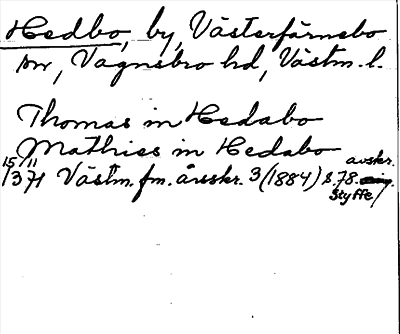 Hedbo, by, Västerfärnebo
sn, Vagnsbro hd, Västm. l.
Thomas in Hedabo
Mathies in Hedabo
15/11 1371 Västm. fm. årsskr. 3 (1884) s. 78. avskr.
Styffe/